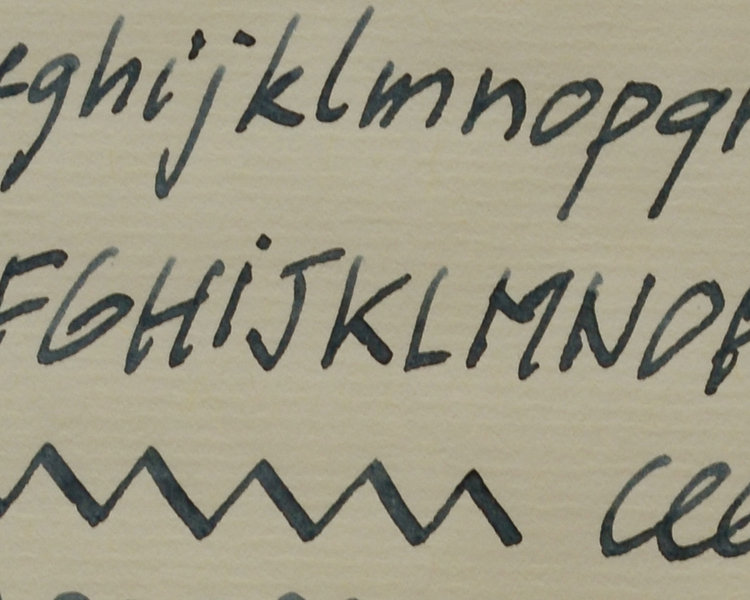 ghijklmnopq
FGHiJKLMNO